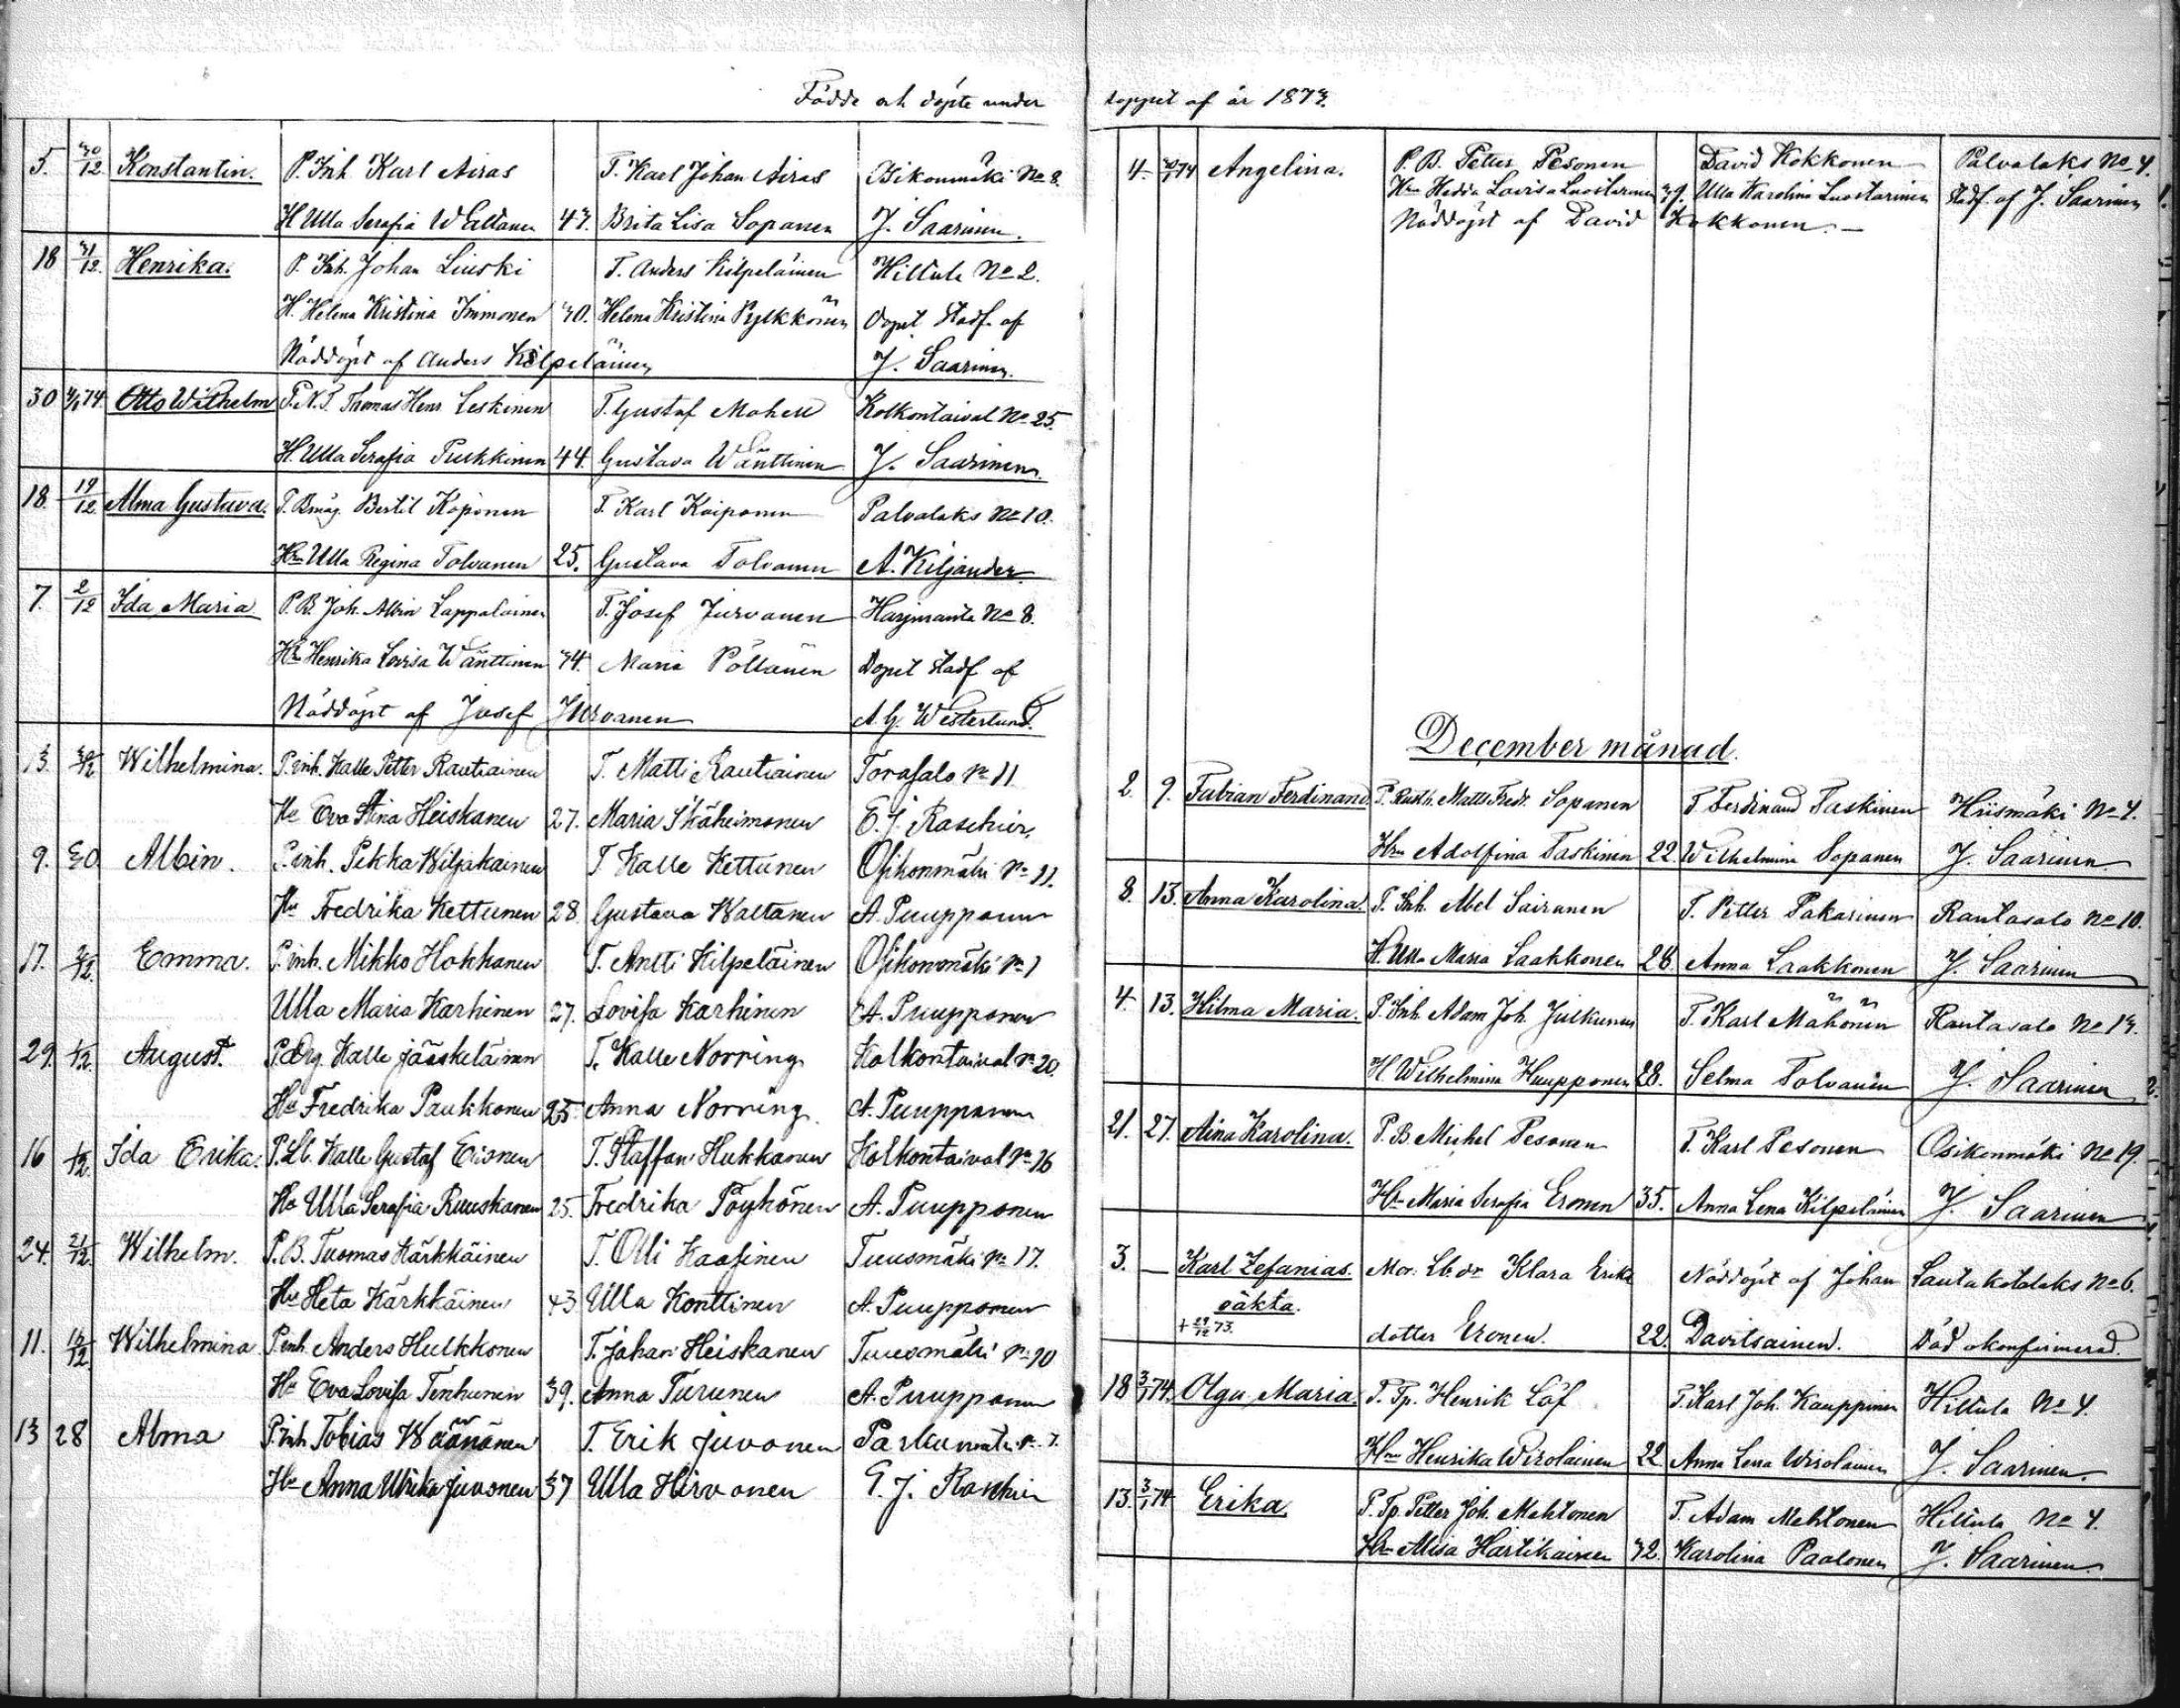 Födde och döpte under
5. 30/12. Konstantin. P. Inh Karl Airas T. Karl Johan Airas Osikonmäki No 8.
H Ulla Serafia Waltanen 43. Brita Lisa Sopanen J. Saarinen.
18 31/12. Henrika. P. Inh. Johan Liuski T. Anders Kilpeläinen Hiltula No 2.
H. Helena Kristina Immonen 30. Helena Kristina Pylkkönen Dopet stadf. af
Nöddöpt af Anders Kilpeläinen J. Saarinen.
30 74. Otto Wilhelm P. N. T. Thomas Henr. Leskinen T. Gustaf Mohell Kolkontaival No 25.
H. Ulla Serafia Pulkkinen 44. Gustava Wänttinen J. Saarinen.
18. 19/12. Alma Gustava. P. Bmåg. Bertil Koponen T. Karl Koiponen Palvalaks No 10.
Hru Ulla Regina Tolvanen 25. Gustava Tolvanen A. Kiljander.
7. 2/12 Ida Maria P. B. Joh. Albin Lappalainen T. Josef Jurvanen Harjuranta No 8.
Hru Henrika Lovisa Wänttinen 34. Maria Pöllänen Dopet stadf af
Nöddöpt af Josef Jurvanen A. G. Westerlund.
13. Wilhelmina. P. inh. Kalle Petter Rautiainen T. Matti Rautiainen Torasalo No 11
Hu Eva Stina Heiskanen 27. Maria Ikäheimonen E. J. Raschier.
9. 30. Albin. P. inh. Pekka Wiljakainen T Kalle Kettunen Osikonmäki No 11.
Hu Fredrika Kettunen 28. Gustava Waltanen A. Puupponen
17. Emma. P. inh. Mikko Hokkanen T. Antti Kilpeläinen Osikonmäki No 1
Ulla Maria Karhinen 27. Lovisa Karhinen A. Puupponen
29. 1/12. August. Kalle Jääskeläinen T. Kalle Norring Kolkontaival No 20.
Hu Fredrika Paukkonen 25. Anna Norring. A. Puupponen
16 Ida Erika. P. Lb. Kalle Gustaf Eronen T. Staffan Hukkanen Kolkontaival No 16
Hu Ulla Serafia Ruuskanen 25. Fredrika Pöyhönen A. Puupponen
24. 21/12. Wilhelm. P. B. Tuomas Kärkkäinen T. Olli Kaasinen Tuusmäki No 17.
Hu Heta Kärkkäinen 43 Ulla Konttinen A. Puupponen
11. Wilhelmina P. inh. Anders Hulkkonen T. Johan Heiskanen Tuusmäki No 10
Hu Eva Lovisa Tenhunen 39. Anna Turunen A. Puupponen
13 28 Alma P. inh Tobias Wäänänen T. Erik Juvonen Parkumäki No 7.
Hu Anna Ulrika Juvonen 37 Ulla Hirvonen E. J. Raschier
loppet af år 1873.
4. 74 Angelina. P. B. Petter Pesonen David Kokkonen Palvalaks No 4.
Hru Hedda Lovisa Luostarinen 39. Ulla Karolina Luostarinen Stadf. af J. Saarinen
Nöddöpt af David Kokkonen. —
December månad.
2. 9. Fabian Ferdinand. P. Rusth. Matts Fredr. Sopanen T Ferdinand Taskinen Hiismäki No 4.
Hru Adolfina Taskinen 22. Wilhelmina Sopanen J. Saarinen
8. 13. Anna Karolina. P. Inh. Abel Sairanen T. Petter Pakarinen Rantasalo No 10.
H. Ulla Maria Laakkonen 28. Anna Laakkonen J. Saarinen
4. 13. Hilma Maria. P. Inh. Adam Joh. Julkunen T. Karl Mähönen Rantasalo No 13.
H Wilhelmina Huupponen 28. Selma Tolvanen J. Saarinen
21. 27. Aina Karolina. P. B. Michel Pesonen T. Karl Pesonen Osikonmäki No 19.
Hru Maria Serafia Eronen 35. Anna Lena Kilpeläinen J. Saarinen
3. — Karl Zefanias. Mor. Lb. dr Klara Erika Nöddöpt af Johan Lautakotalaks No 6.
oäkta.
+ 29/12 73. dotter Eronen. 22. Davitsainen. Död okonfirmerad.
18 3/1 74. Olga Maria. P. Tp. Henrik Löf T. Karl Joh. Kauppinen Hiltula No 4.
Hru Henrika Wirolainen 22 Anna Lena Wirolainen J. Saarinen.
13. 3/1 74 Erika. P. Tp. Petter Joh. Mehtonen T. Adam Mehtonen Hiltula No 4.
Hru Miisa Hartikainen 32. Karolina Paalonen J. Saarinen.